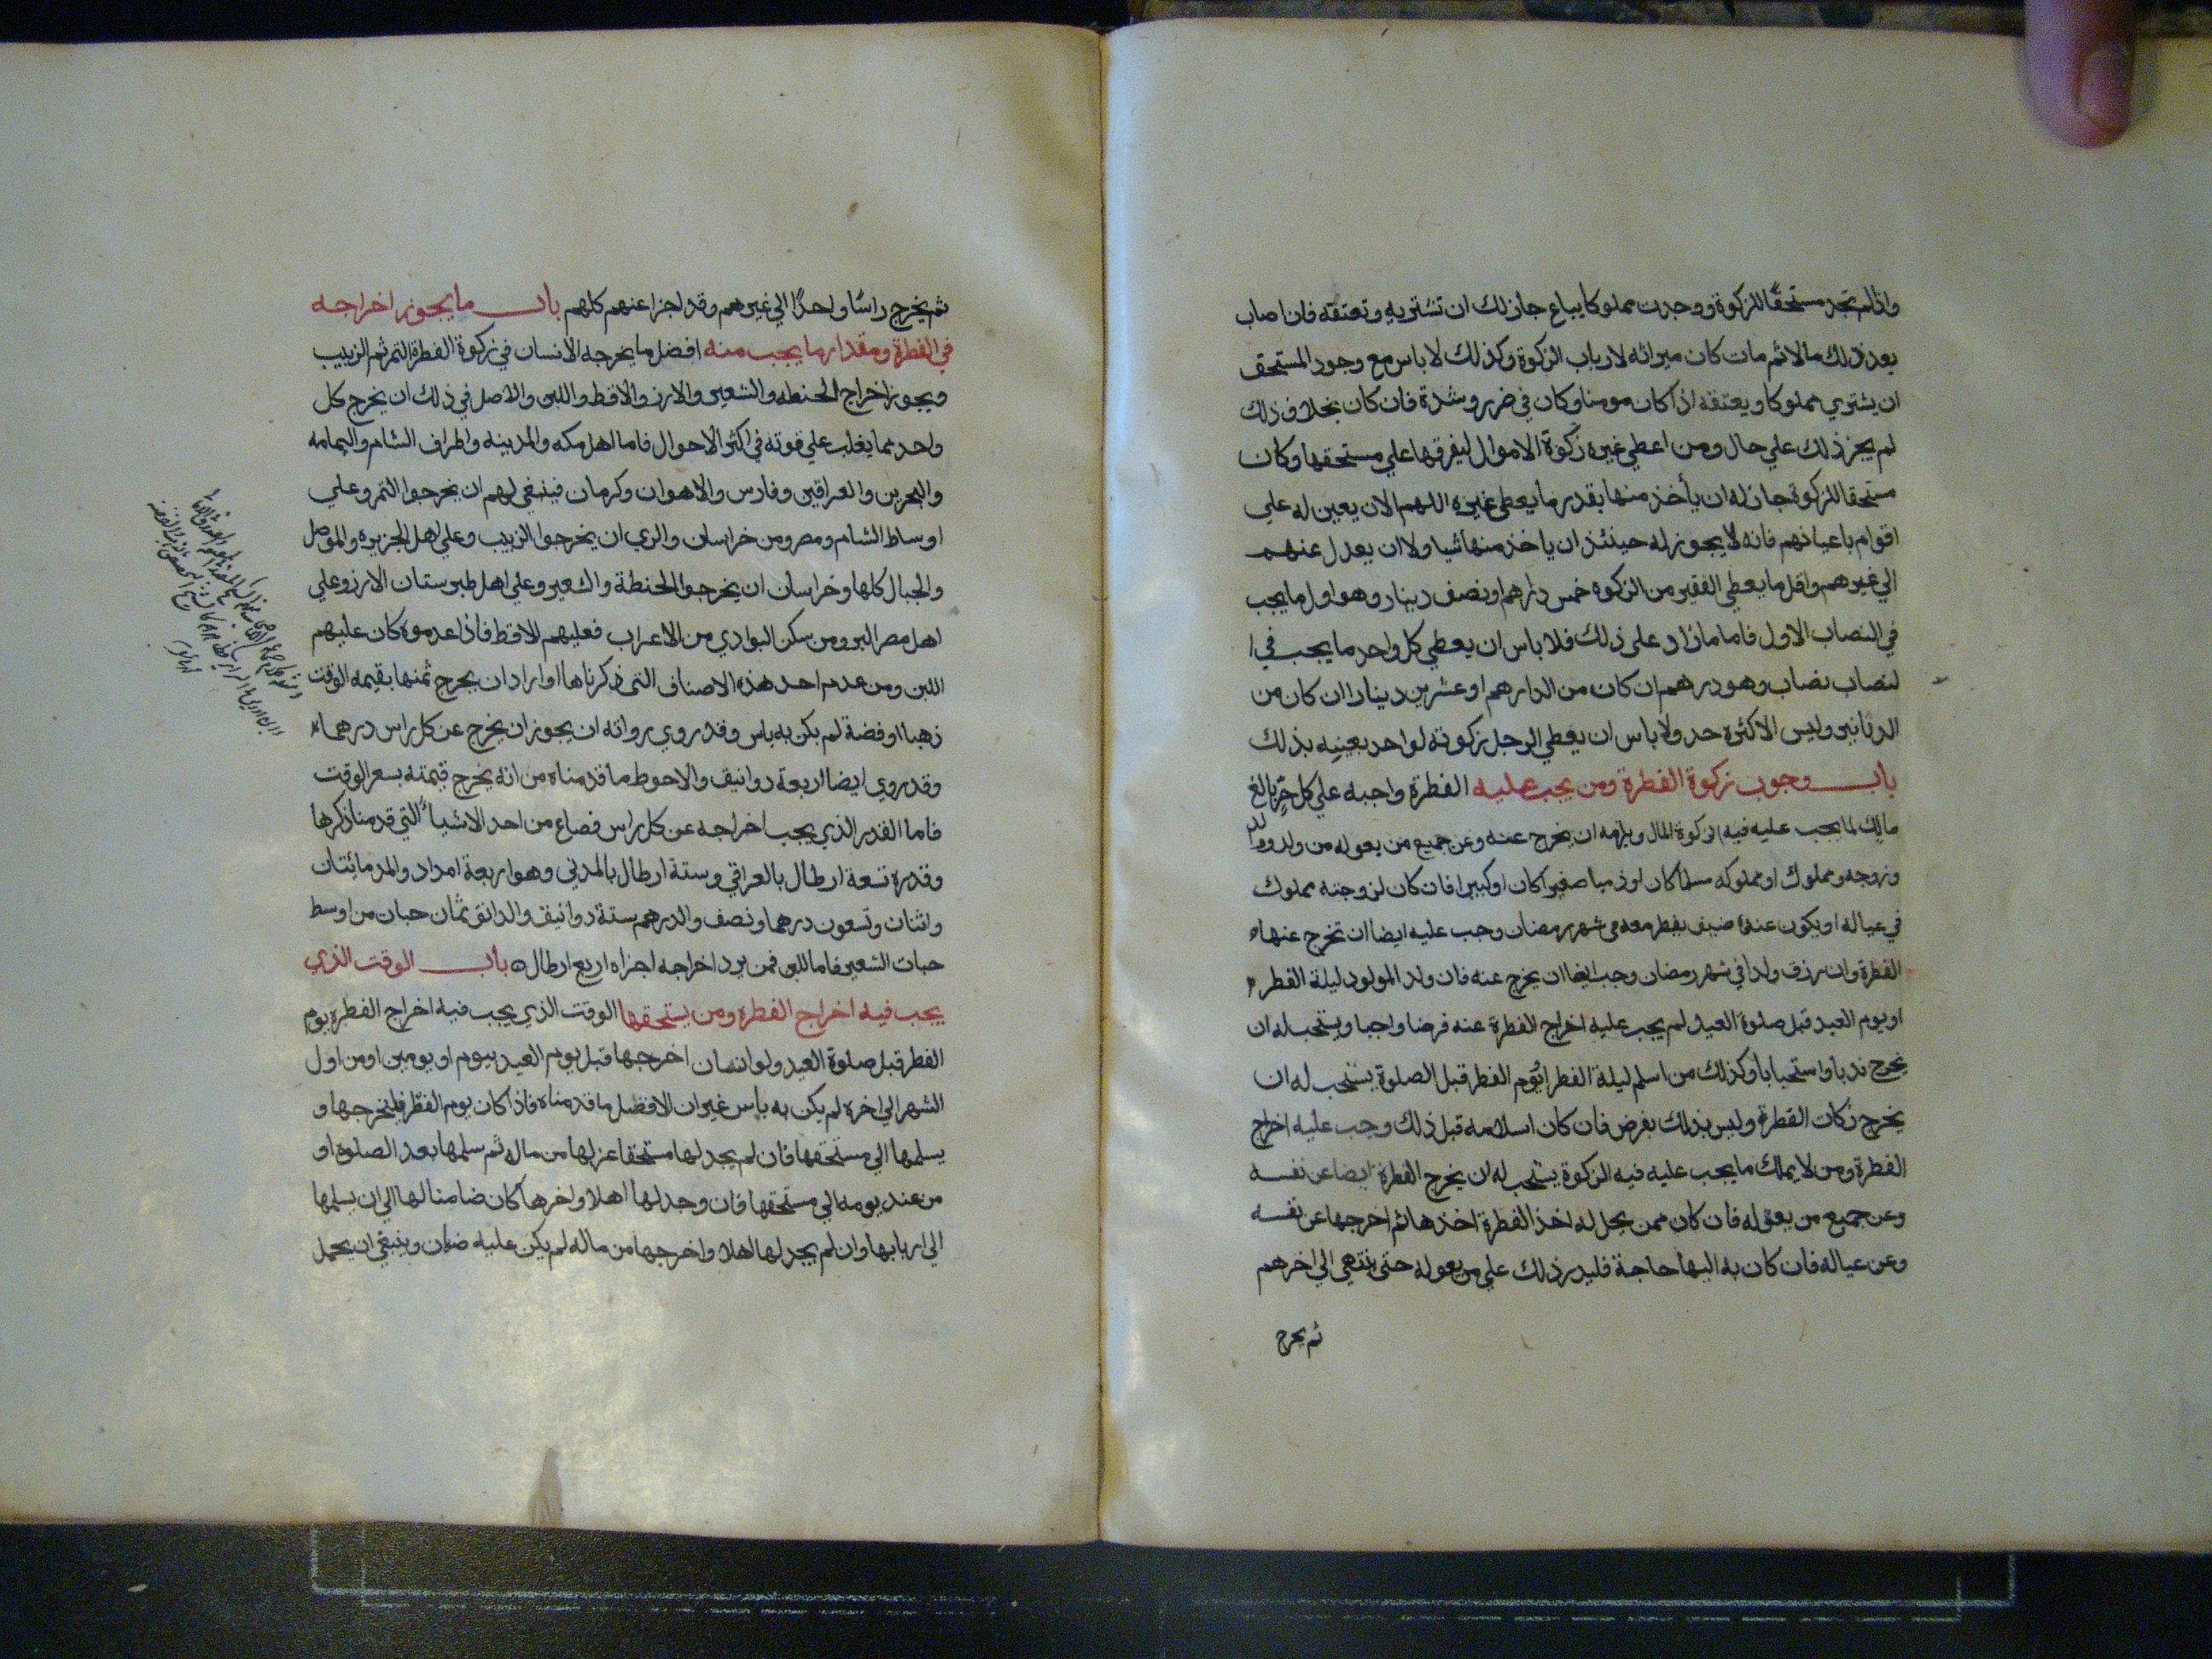 واذا لم تجد مستحقا للزكوة ووجدت مملوكا يباع جاز لك ان تشتريه وتعتقه فان اصاب
بعد ذلك مالا ثم مات كان ميراثه لارباب الزكوة وكذلك لا باس مع وجود المستحق
ان يشتري مملوكا ويعتقه اذا كان مومنا وكان في ضر وشدة فان كان بخلاف ذلك
لم يجز ذلك علي حال ومن اعطي غيره زكوة الاموال ليفرقها علي مستحقها وكان
مستحقا للزكوة جاز له ان يأخذ منها بقدر ما يعطي غيره اللهم الا ان يعين له علي
اقوام باعيانهم فانه لا يجوز له حينئذ ان ياخذ منها شيا ولا ان يعدل عنهم
الي غيرهم واقل ما يعطي الفقير من الزكوة خمس دارهم او نصف دينار وهو اول ما يجب
في النصاب الاول فاما ما زاد على ذلك فلا باس ان يعطي كل واحد ما يجب في ا
لنصاب نصاب وهو درهم ان كان من الدارهم او عشرين دينارا ان كان من
الدنانير وليس الاكثره حد ولا باس ان يعطي الرجل زكوته لواحد بعينه بذلك
باب وجوب زكوة الفطرة ومن يجب عليه الفطرة واجبه علي كل حر بالغ
مالك لما يجب عليه فيه الزكوة المال ويلزمه ان يخرج عنه وعن جميع من يعوله من ولد ووالد
وزوجه ومملوك او مملوكه مسلما كان او ذميا صغيرا كان او كبيرا فان كان لزوجته مملوك
في عياله او يكون عنده ضيف يفطر معه في شهر رمضان وجب عليه ايضا ان تخرج عنهاه
الفطرة وان رزق ولدا في شهر رمضان وجب ايضا ان يخرج عنه فان ولد المولود ليلة الفطر
او يوم العيد قبل صلوة العيد لم يجب عليه اخراج الفطرة عنه فرضا واجبا ويستحب له ان
يخرج ندبا واستحبابا وكذلك من اسلم ليلة الفطر ايوم الفطر قبل الصلوة يستحب له ان
يخرج زكات الفطرة وليس بذلك بفرض فان كان اسلامه قبل ذلك وجب عليه اخراج
الفطرة ومن لا يملك ما يجب عليه فيه الزكوة يستحب له ان يخرج الفطرة ايضا عن نفسه
وعن جميع من يعوله فان كان ممن يحل له اخذ الفطرة اخذها ثم اخرجها عن نفسه
وعن عياله فان كان به اليها حاجة فليدر ذلك علي من يعوله حتى ينتهي الي اخرهم
ثم يخرج
ثم يخرج راسا واحدا الي غيرهم وقد اجزا عنهم كلهم باب ما يجوز اخراجه
في الفطرة ومقدار ما يجب منه افضل ما يخرجه الانسان في زكوة الفطرة التمر ثم الزبيب
ويجوز اخراج الحنطه والشعير والارز والاقط واللبن والاصل في ذلك ان يخرج كل
واحد مما يغلب علي قوته في اكثر الاحوال فاما اهل مكه والمدينه واطراف الشام واليمامه
والبحرين والعراقين وفارس والاهوان وكرمان فينبغي لهم ان يخرجوا التمر وعلي
اوساط الشام ومصر ومن خراسان والري ان يخرجوا الزبيب وعلي اهل الجزيره والموصل
والجبال كلها وخراسان ان يخرجوا الحنطة والشعير وعلي اهل طبرستان الارز وعلي
اهل مصر البر ومن سكن البوادي من الاعراب فعليهم الاقط فاذا عدموه كان عليهم
اللبن ومن عدم احد هذه الاصناف التى ذكرناها او اراد ان يخرج ثمنها بقيمه الوقت
ذهبا او فضة لم يكن به باس وقد روي رواته ان يجوز ان يخرج عن كل راس درهما
وقد روي ايضا اربعة دوانيق والاحوط ما قدمناه من انه يخرج قيمته بسعر الوقت
فاما القدر الذي يجب اخراجه عن كل راس فصاع من احد الاشياء التي قدمنا ذكرها
وقدره تسعة ارطال بالعراقي وستة ارطال بالمدني وهو اربعة امداد والمد مائتان
واثنان وتسعون درهما ونصف والدرهم ستة دوانيق والدانق ثمان حبان من اوسط
حبات الشعير فاما اللبن فمن يرد اخراجه اجزاه اربع ارطال باب الوقت الذي
يجب فيه اخراج الفطره ومن يستحقها الوقت الذي يجب فيه اخراج الفطره يوم
الفطر قبل صلوة العيد ولو انسان اخرجها قبل يوم العيد بيوم او يومين او من اول
الشهر الي اخره لم يكن به باس غير ان الافضل ما قدمناه فاذا كان يوم الفطر فليخرجها و
يسلمها الي مستحقها فان لم يجد لها مستحقا عزلها من ماله ثم سلمها بعد الصلوة او
من عند يومه الي مستحقها فان وجد لها اهلا واخرها كان ضامنا لها الي ان يسلمها
الي اربابها وان لم يجد لها اهلا واخرجها من ماله لم يكن عليه ضمان وينبغي ان يحمل